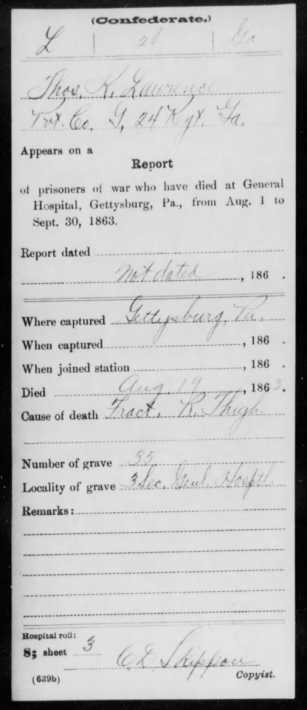 (Confederate.)
L | 24 | Ga
Thos. K. Lawrence
Pvt. Co. G, 24 Rgt. Ga.
Appears on a
Report
of prisoners of war who have died at General
Hospital, Gettysburg, Pa., from Aug. 1 to
Sept. 30, 1863.
Report dated
Not dated, 186 .
Where captured Gettysburg, Pa.
When captured , 186 .
When joined station , 186 .
Died Aug 17, 1863.
Cause of death Fract. R. Thigh
Number of grave 35
Locality of grave 3 Sec. Genl Hospt
Remarks:
Hospital roll:
8; sheet 3
(639b)
C L Skippon
Copyist.